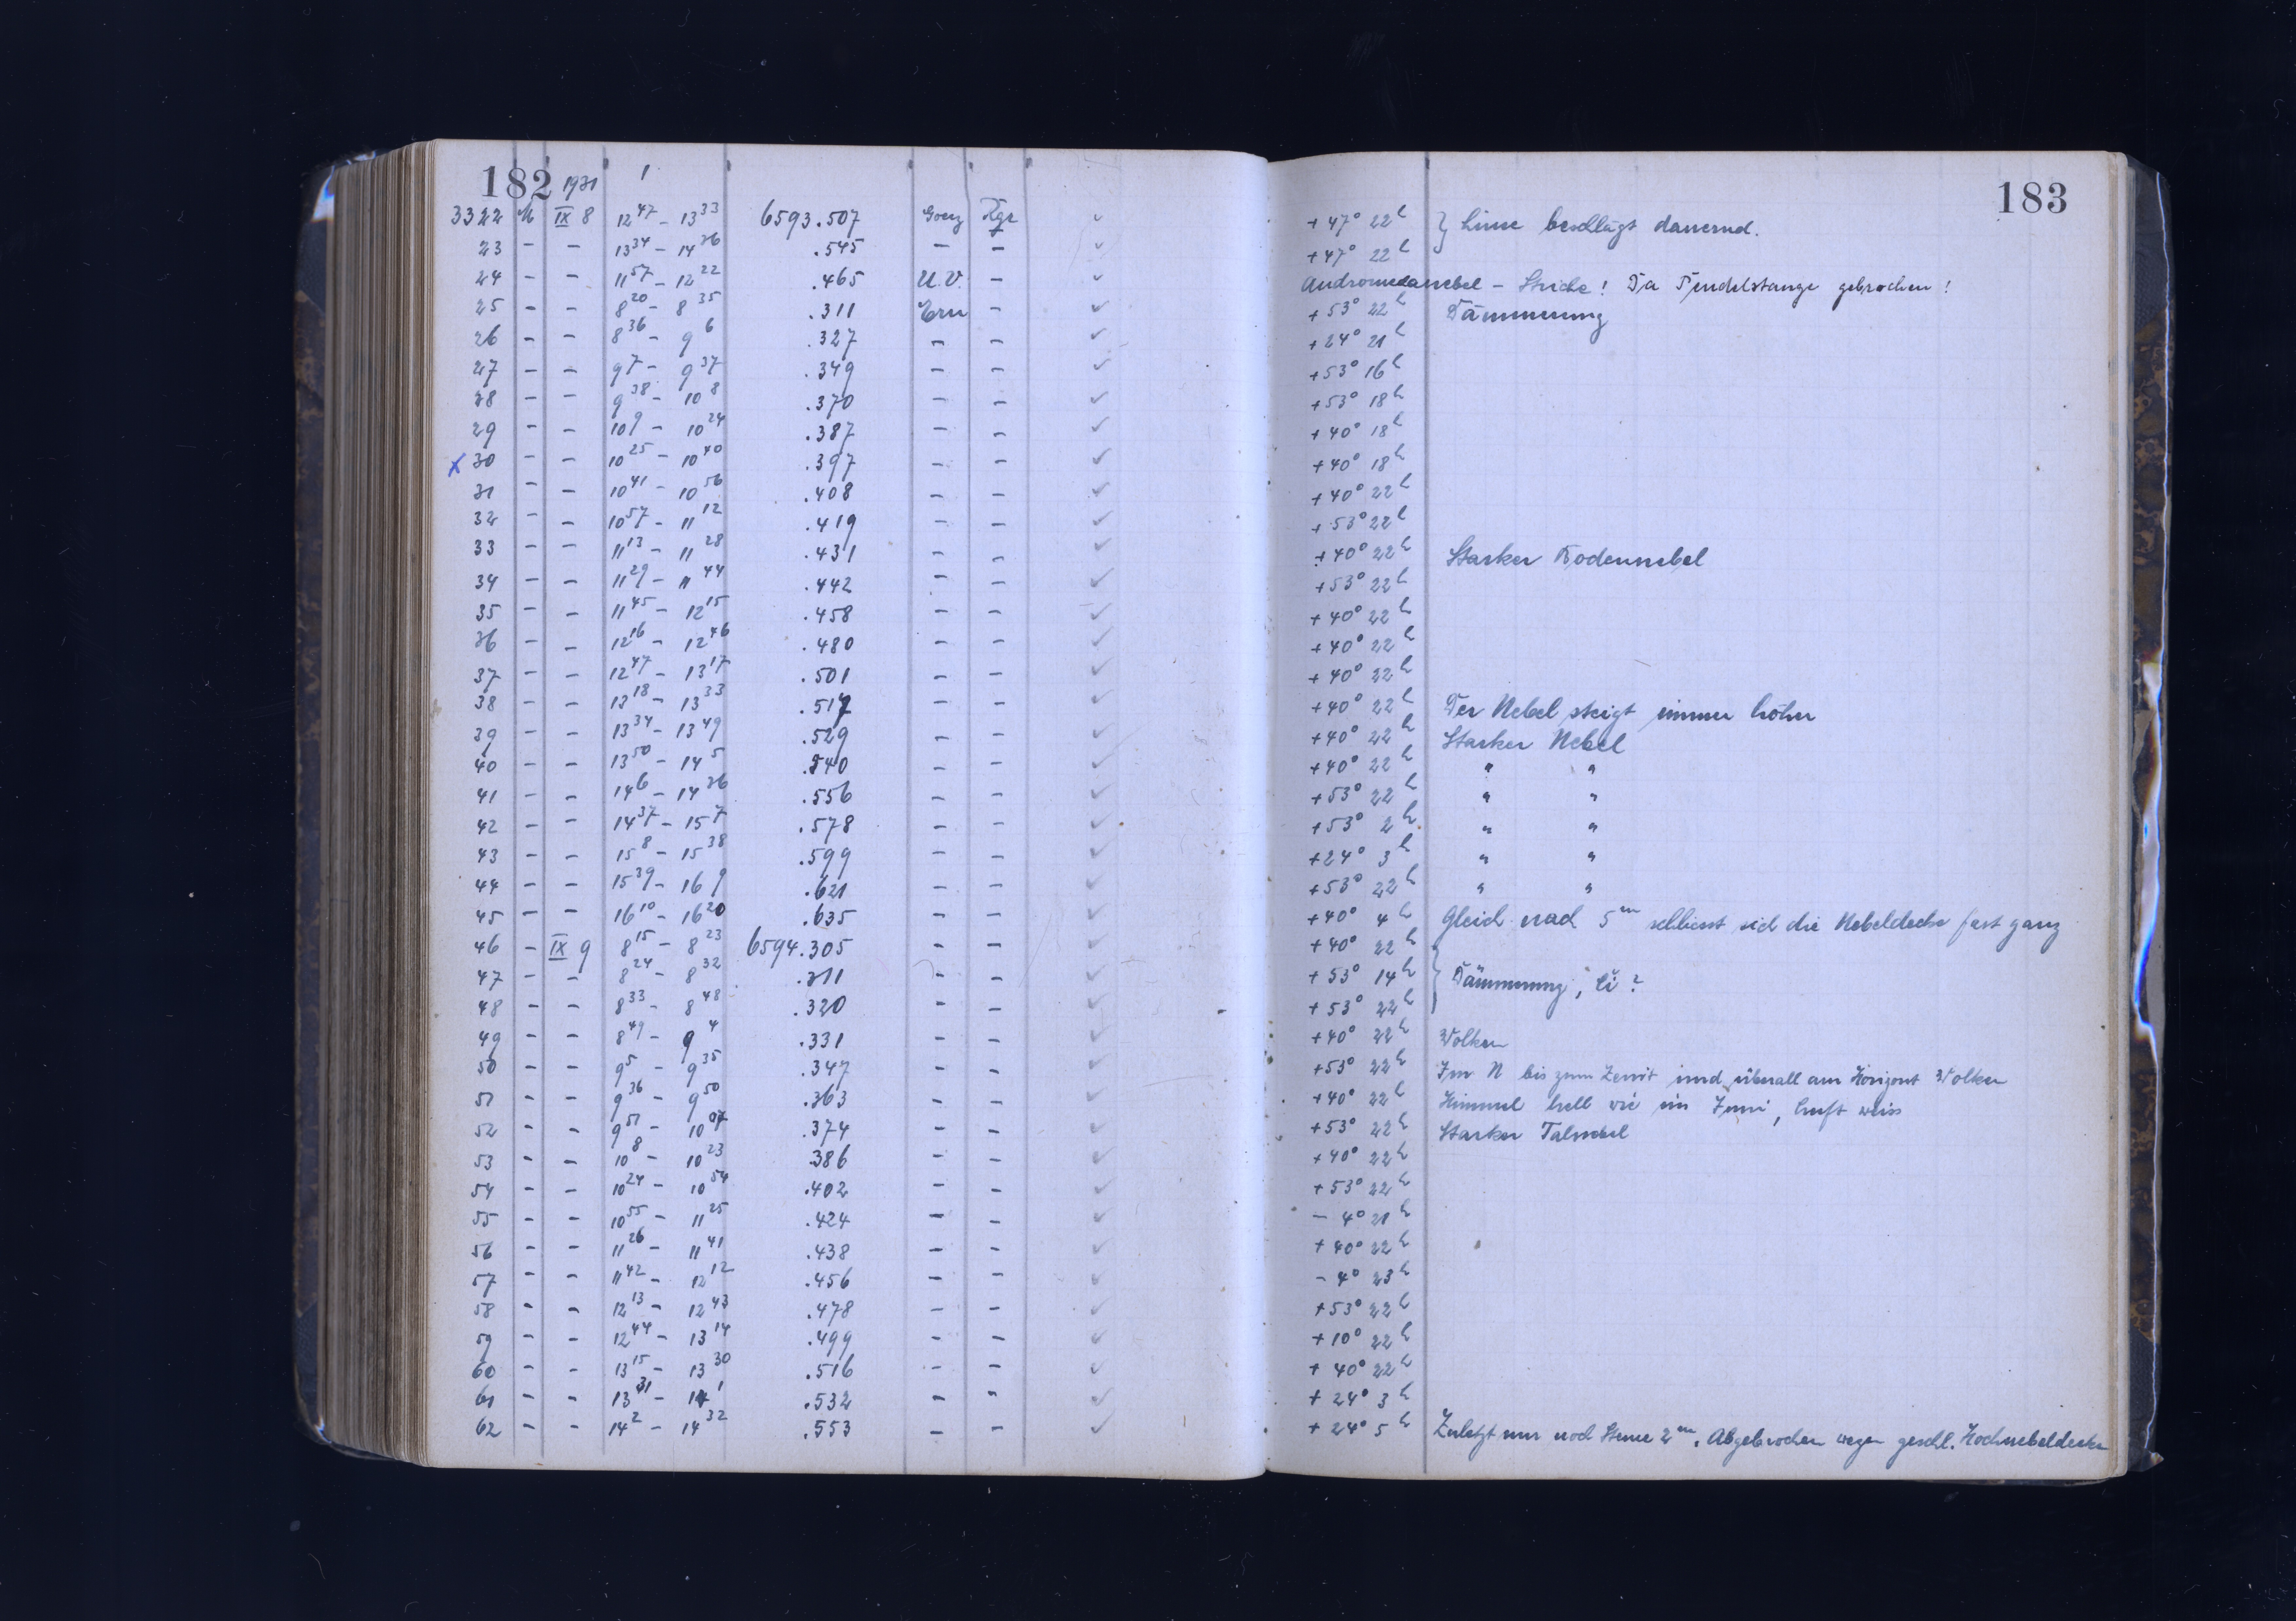 182 1931 1 183
3322 M IX 8 12 47 – 13 33 6593.507 Goerz Kge + 47° 22 h } Linse beschlägt dauernd.
23 – – 13 34 – 14 36 .545 – – + 47° 22 h
24 – – 11 57 – 12 22 .465 U.V. – Andromedanebel – Striche! Da Pendelstange gebrochen!
25 – – 8 20 – 8 35 .311 Ern – + 53° 22 h Dämmerung
26 – – 8 36 – 9 6 .327 – – + 24° 21 h
27 – – 9 7 – 9 37 .349 – – + 53° 16 h
28 – – 9 38 – 10 8 .370 – – + 53° 18 h
29 – – 10 9 – 10 24 .387 – – + 40° 18 h
x 30 – – 10 25 – 10 40 .397 – – + 40° 18 h
31 – – 10 41 – 10 56 .408 – – + 40° 22 h
32 – – 10 57 – 11 12 .419 – – + 53° 22 h
33 – – 11 13 – 11 28 .431 – – + 40° 22 h Starker Bodennebel
34 – – 11 29 – 11 44 .442 – – + 53° 22 h
35 – – 11 45 – 12 15 .458 – – + 40° 22 h
36 – – 12 16 – 12 46 .480 – – + 40° 22 h
37 – – 12 47 – 13 17 .501 – – + 40° 22 h
38 – – 13 18 – 13 33 .517 – – + 40° 22 h Der Nebel steigt immer höher
39 – – 13 34 – 13 49 .529 – – + 40° 22 h Starker Nebel
40 – – 13 50 – 14 5 .540 – – + 40° 22 h " "
41 – – 14 6 – 14 36 .556 – – + 53° 22 h " "
42 – – 14 37 – 15 7 .578 – – + 53° 2 h " "
43 – – 15 8 – 15 38 .599 – – + 24° 3 h " "
44 – – 15 39 – 16 9 .621 – – + 53° 22 h " "
45 – – 16 10 – 16 20 .635 – – + 40° 4 h Gleich nach 5 m schliesst sich die Nebeldecke fast ganz
46 – IX 9 8 15 – 8 23 6594.305 – – + 40° 22 h
47 – – 8 24 – 8 32 .311 – – + 53° 14 h } Dämmerung, Ci?
48 – – 8 33 – 8 48 .320 – – + 53° 22 h
49 – – 8 49 – 9 4 .331 – – + 40° 22 h Wolken
50 – – 9 5 – 9 35 .347 – – + 53° 22 h Im N bis zum Zenit und überall am Horizont Wolken
51 – – 9 36 – 9 50 .363 – – + 40° 22 h Himmel hell wie im Juni, Luft weiss
52 – – 9 51 – 10 07 .374 – – + 53° 22 h Starker Talnebel
53 – – 10 8 – 10 23 .386 – – + 40° 22 h
54 – – 10 24 – 10 54 .402 – – + 53° 22 h
55 – – 10 55 – 11 25 .424 – – – 4° 21 h
56 – – 11 26 – 11 41 .438 – – + 40° 22 h
57 – – 11 42 – 12 12 .456 – – – 4° 23 h
58 – – 12 13 – 12 43 .478 – – + 53° 22 h
59 – – 12 44 – 13 14 .499 – – + 10° 22 h
60 – – 13 15 – 13 30 .516 – – + 40° 22 h
61 – – 13 31 – 14 1 .532 – – + 24° 3 h
62 – – 14 2 – 14 32 .553 – – + 24° 5 h Zuletzt nur noch Sterne 2 m. Abgebrochen wegen geschl. Hochnebeldecke